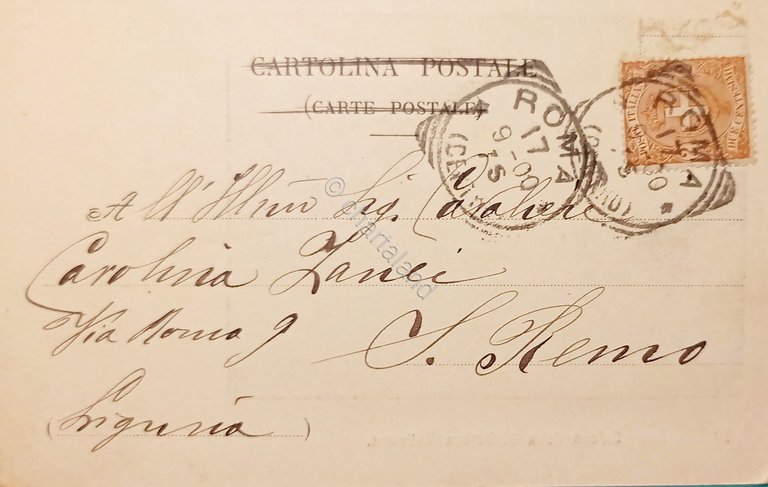 CARTOLINA POSTALE
(CARTE POSTALE)
ROMA
17
9-00
15
(CENTRO)
ROMA
17
DUE CENT
All'Illmo Sig. Cavaliere
Carolina Zanei
Via Roma 9 S. Remo
(Liguria)
© chartaland